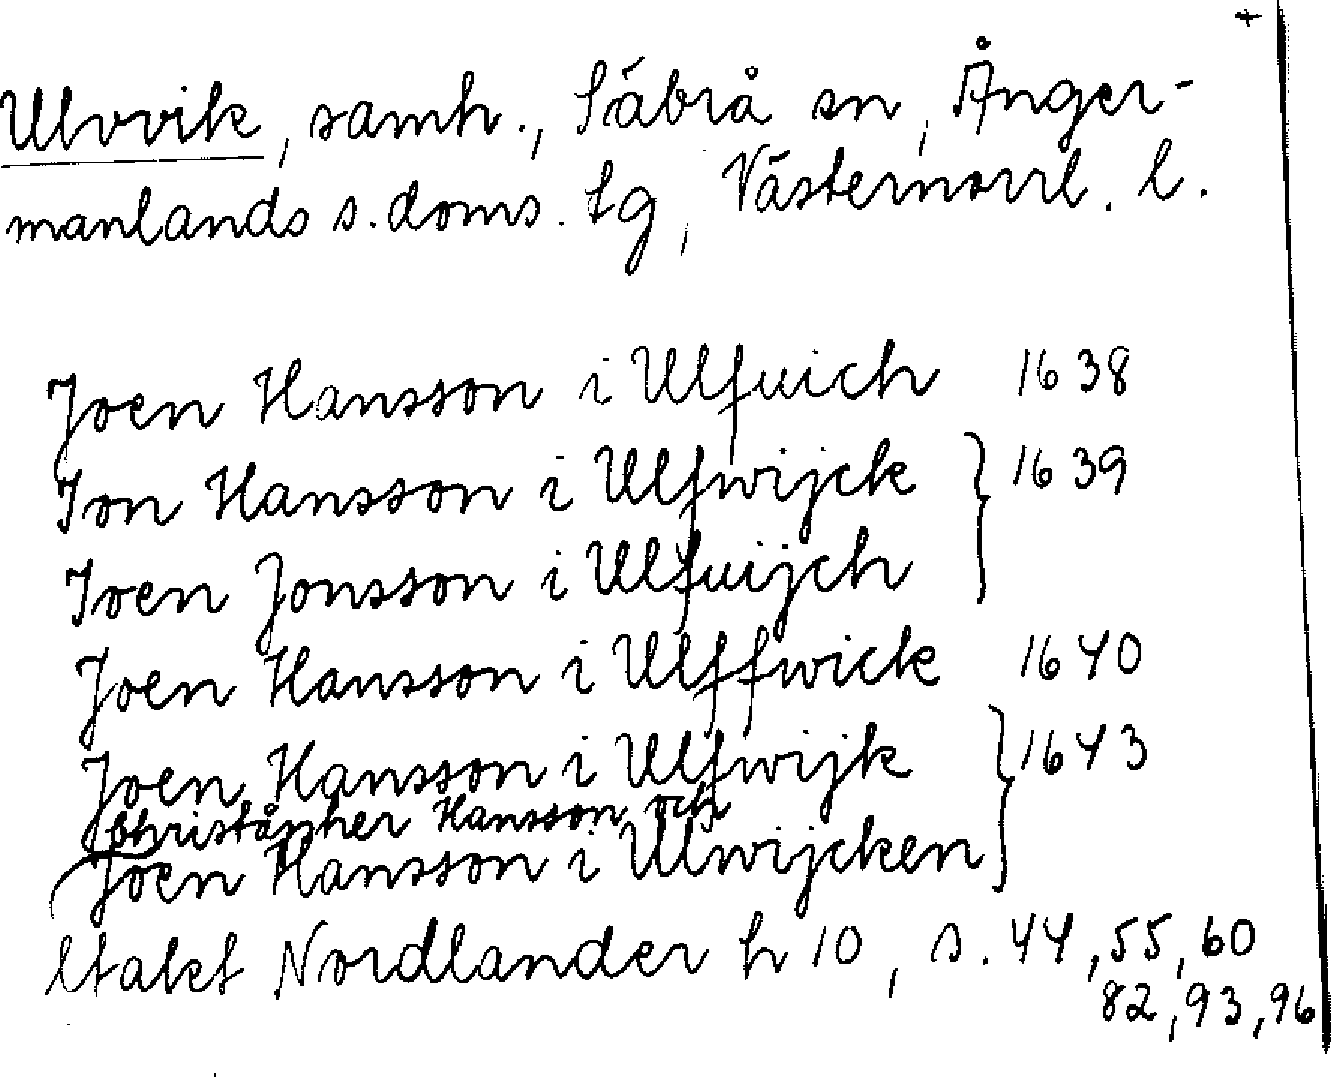 +
Ulvvik, samh., Säbrå sn, Ånger-
manlands s. doms. tg, Västernorrl. l.
Joen Hansson i Ulfuich 1638
Jon Hansson i Ulfwijck } 1639
Joen Jonsson i Ulfuijch
Joen Hansson i Ulffwick 1640
Joen Hansson i Ulfwijk } 1643
Christåpher Hansson och
Joen Hansson i Ulwijcken
Utakt Nordlander h 10, s. 44, 55, 60
82, 93, 96